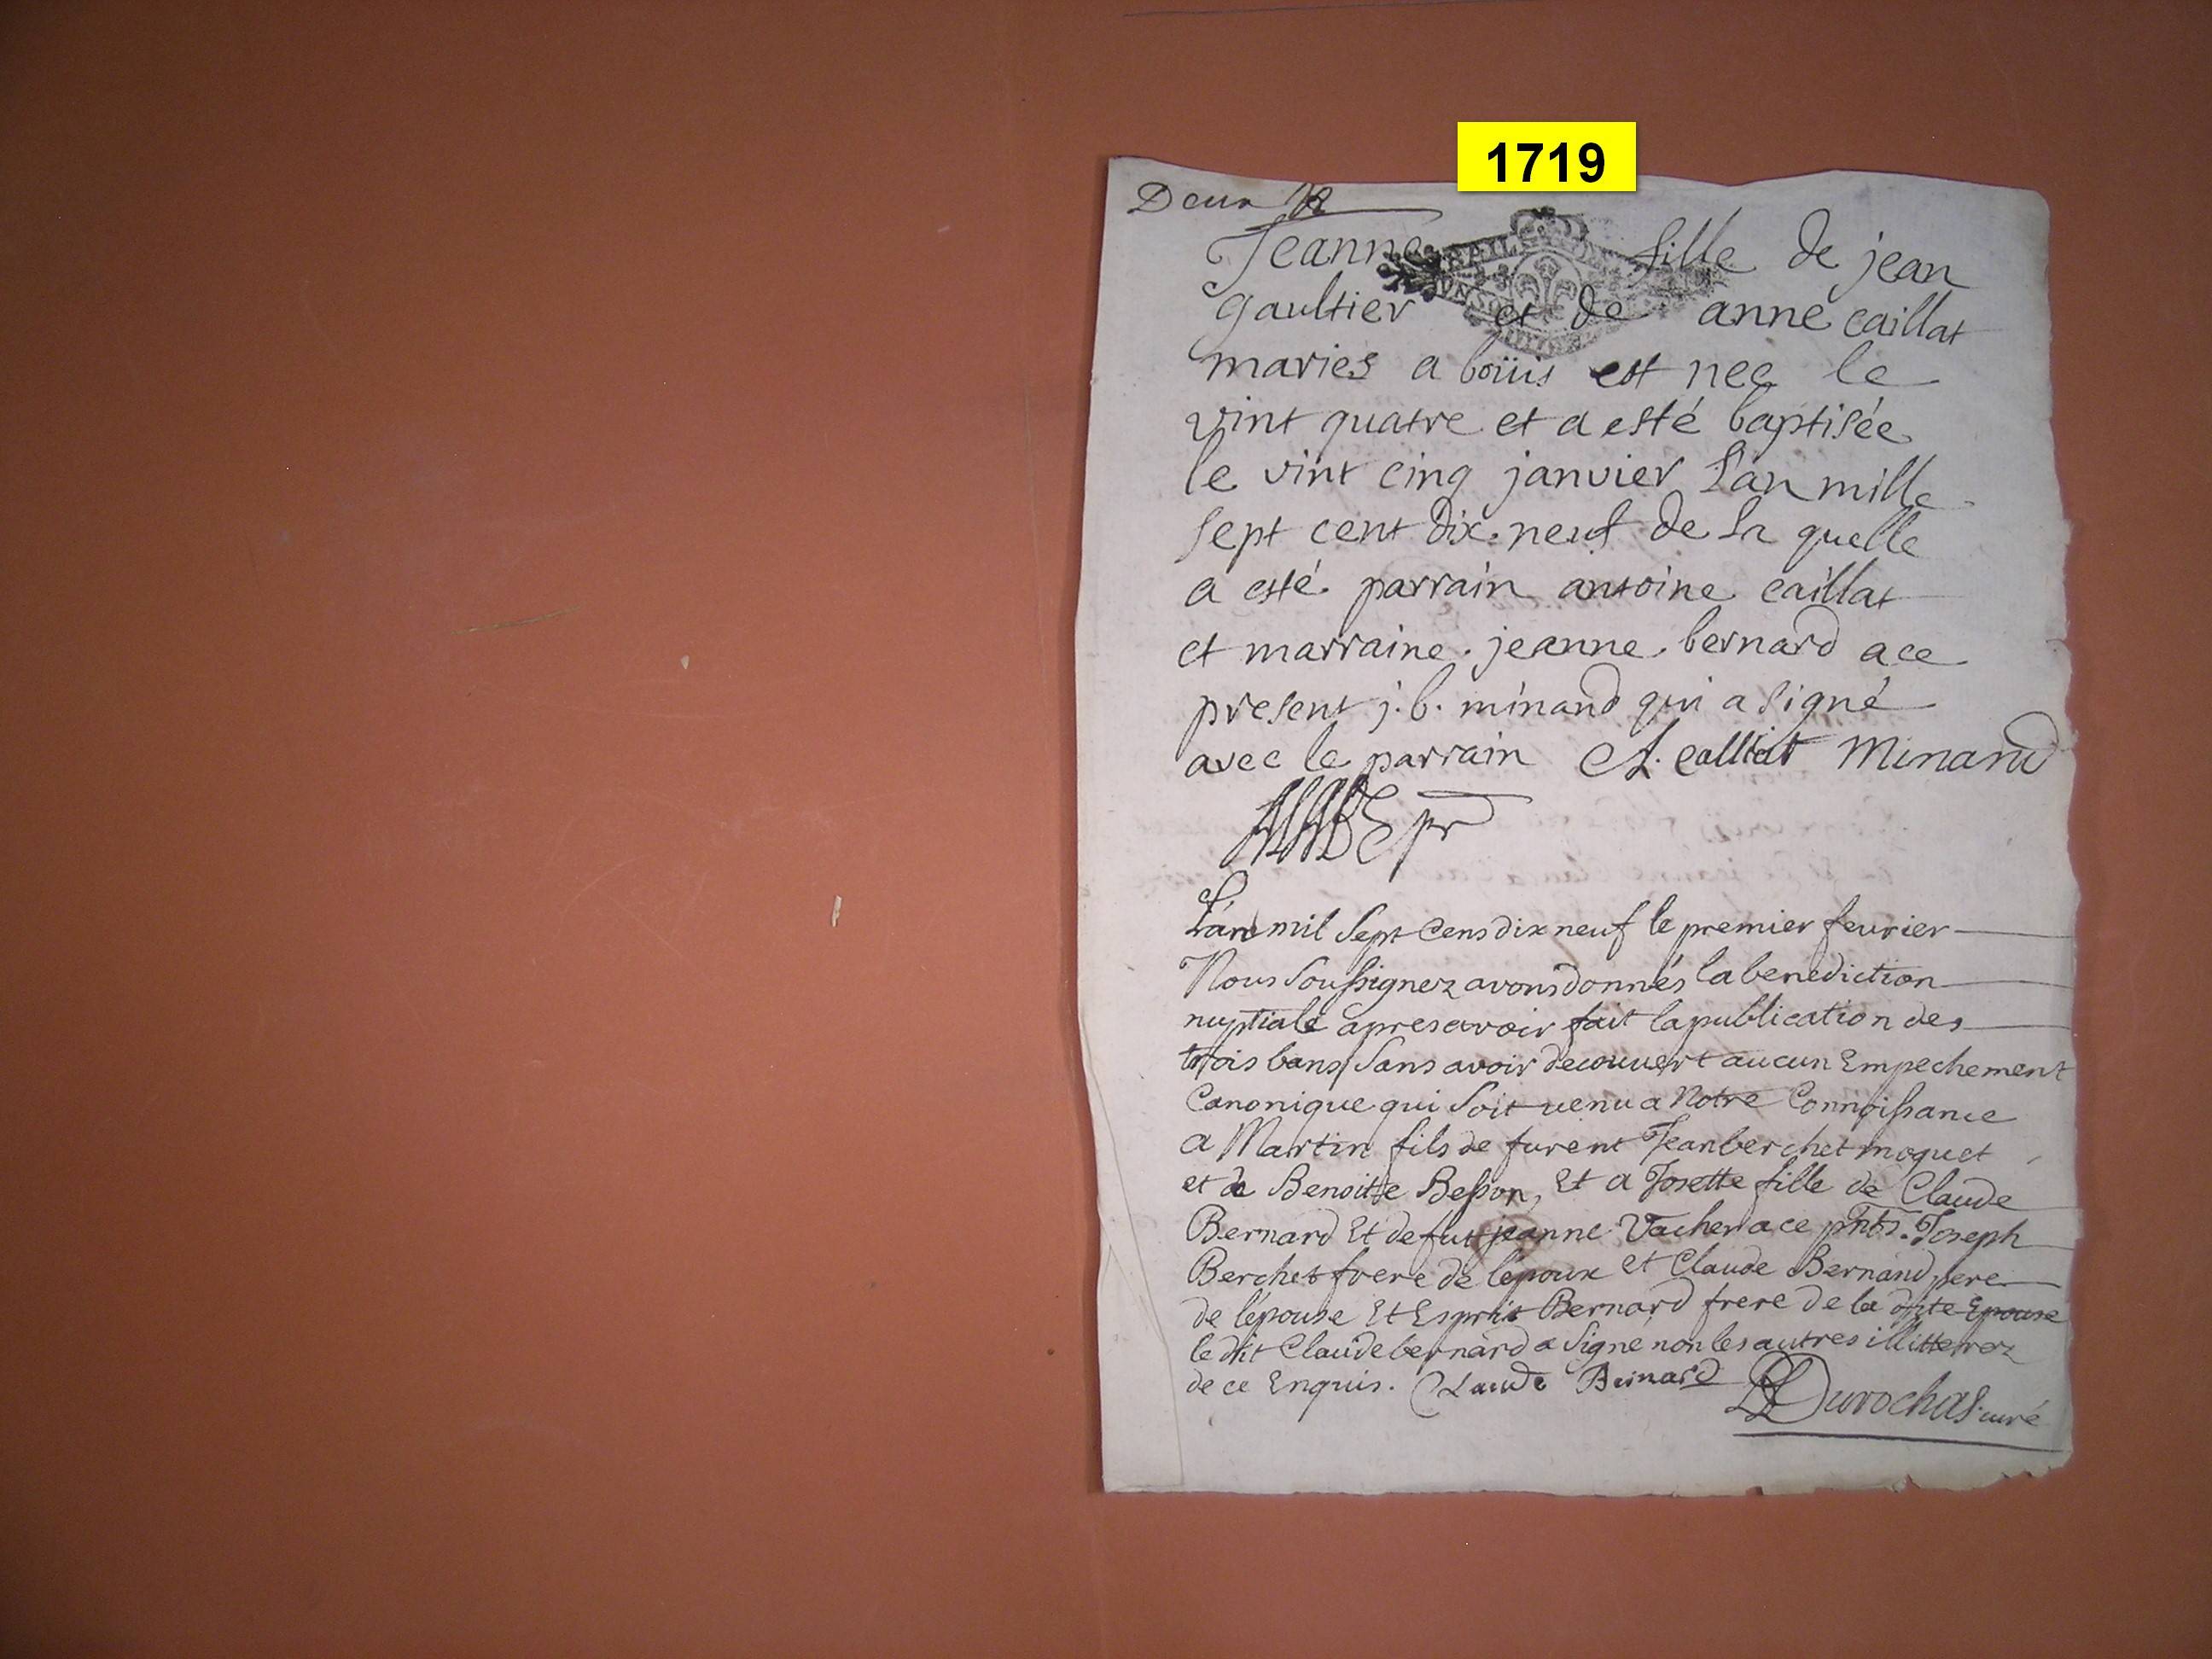 1719
Deux
Jeanne fille de jean
gaultier et de anne caillat
maries a boüis est nee le
vint quatre et a esté baptisée
le vint cinq janvier l'an mille
sept cent dix-neuf de la quelle
a esté parrain antoine caillat
et marraine jeanne bernard a ce
present j. b. minand qui a signé
avec le parrain A. calliat Minand
L'an mil sept cens dix neuf le premier feurier
Nous soussignez avons donnés la benediction
nuptiale apres avoir fait la publication des
trois bans sans avoir decouuert aucun Empechement
Canonique qui soit venu a Notre Connoissance
a Martin fils de furent Jean berchet moquet
et de Benoitte Besson, Et a Josette fille de Claude
Bernard Et de fut jeanne Vacher a ce pnts. Joseph
Berchet frere de l'époux et Claude Bernard pere
de l'épouse Et Esprit Bernard frere de la dite Epouse
le dit Claude bernard a signe non les autres illitterez
de ce Enquis. Claude Bernard
Durochas curé